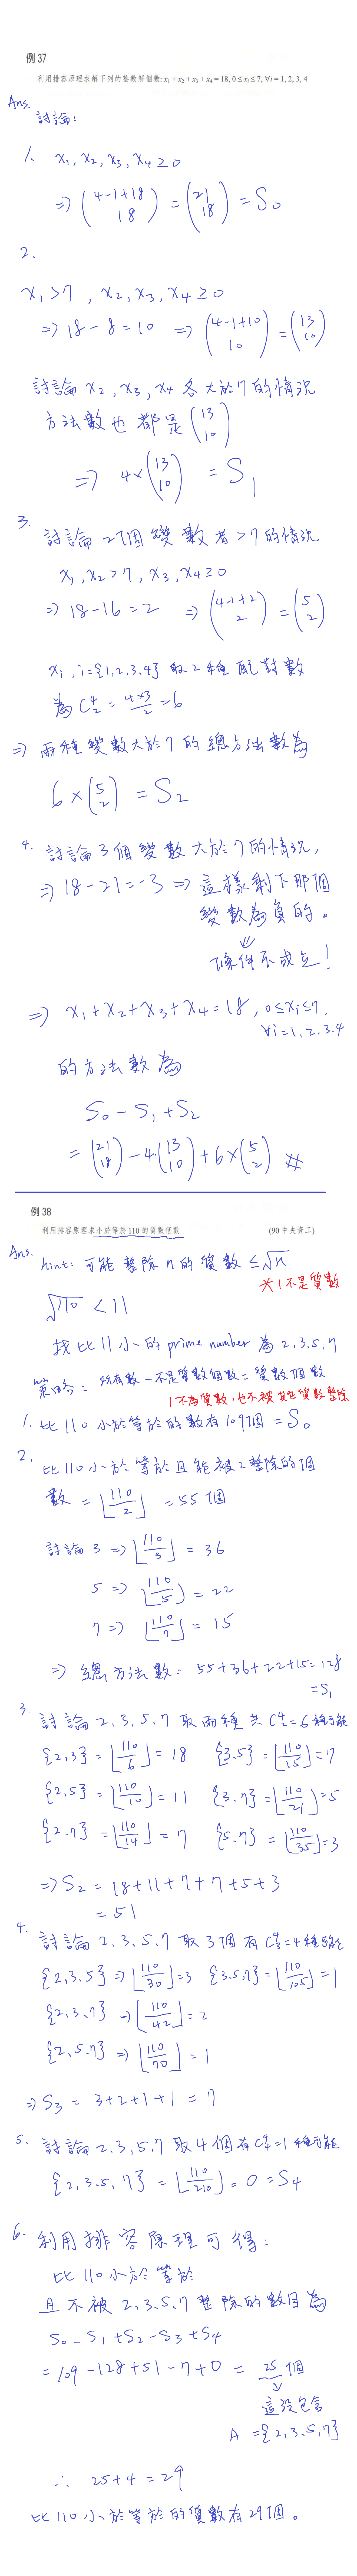 例 37
利用排容原理求解下列的整數解個數: x₁ + x₂ + x₃ + x₄ = 18, 0 ≤ xᵢ ≤ 7, ∀i = 1, 2, 3, 4
Ans.
討論:
1. x₁, x₂, x₃, x₄ ≥ 0
⇒ (4-1+18 18) = (21 18) = S₀
2.
x₁ > 7, x₂, x₃, x₄ ≥ 0
⇒ 18 - 8 = 10 ⇒ (4-1+10 10) = (13 10)
討論 x₂, x₃, x₄ 各大於7的情況
方法數也都是 (13 10)
⇒ 4×(13 10) = S₁
3. 討論2個變數者>7的情況
x₁, x₂ > 7, x₃, x₄ ≥ 0
⇒ 18-16 = 2 ⇒ (4-1+2 2) = (5 2)
xᵢ, i = {1,2,3,4} 取2種配對數
為 C⁴₂ = 4×3/2 = 6
⇒ 兩種變數大於7的總方法數為
6×(5 2) = S₂
4. 討論3個變數大於7的情況,
⇒ 18-21 = -3 ⇒ 這樣剩下那個
變數為負的。
⇓
條件不成立!
⇒ x₁+x₂+x₃+x₄ = 18, 0≤xᵢ≤7,
∀i=1,2,3,4
的方法數為
S₀ - S₁ + S₂
= (21 18) - 4(13 10) + 6×(5 2) #
例 38
利用排容原理求小於等於 110 的質數個數 (90 中央資工)
Ans. hint: 可能整除n的質數 ≤ √n
*1不是質數
√110 < 11
找比11小的prime number 為 2,3,5,7
策略: 所有數 - 不是質數個數 = 質數個數
1不為質數,也不被其它質數整除
1. 比110小於等於的數有109個 = S₀
2. 比110小於等於且能被2整除的個
數 = ⌊110/2⌋ = 55個
討論 3 ⇒ ⌊110/3⌋ = 36
5 ⇒ ⌊110/5⌋ = 22
7 ⇒ ⌊110/7⌋ = 15
⇒ 總方法數: 55+36+22+15 = 128
= S₁
3 討論2,3,5,7取兩種共C⁴₂=6種可能
{2,3} = ⌊110/6⌋ = 18 {3.5} = ⌊110/15⌋ = 7
{2,5} = ⌊110/10⌋ = 11 {3.7} = ⌊110/21⌋ = 5
{2.7} = ⌊110/14⌋ = 7 {5.7} = ⌊110/35⌋ = 3
⇒ S₂ = 18+11+7+7+5+3
= 51
4. 討論2,3,5,7取3個有C⁴₃=4種可能
{2,3,5} ⇒ ⌊110/30⌋ = 3 {3.5.7} = ⌊110/105⌋ = 1
{2,3,7} ⇒ ⌊110/42⌋ = 2
{2,5.7} ⇒ ⌊110/70⌋ = 1
⇒ S₃ = 3+2+1+1 = 7
5. 討論2,3,5,7取4個有C⁴₄=1種可能
{2,3.5,7} = ⌊110/210⌋ = 0 = S₄
6. 利用排容原理可得:
比110小於等於
且不被2,3,5,7整除的數目為
S₀ - S₁ + S₂ - S₃ + S₄
= 109 - 128 + 51 - 7 + 0 = 25個
⇓
這沒包含
A = {2,3,5,7}
∴ 25+4 = 29
比110小於等於的質數有29個。